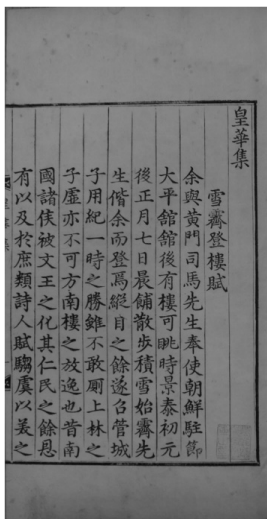 皇華集
雪霽登樓賦
余與黃門司馬先生奉使朝鮮駐節
大平舘舘後有樓可眺時景泰初元
後正月七日晨餔散步積雪始霽先
生偕余而登焉縱目之餘遂召管城
子用紀一時之勝雖不敢厠上林之
子虛亦不可方南樓之放逸也昔南
國諸侯被文王之化其仁民之餘恩
有以及於庶類詩人賦騶虞以美之